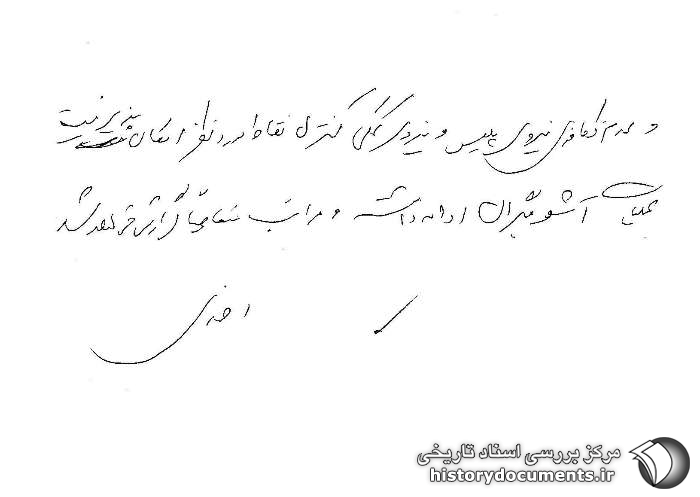 و عدم تکافوی نیروی پلیس و نیروی کمکی کنترل نقاط مورد نظر امکان پذیر نیست
عملیات آشوبگران ادامه داشته و مراتب متعاقباً گزارش خواهد شد
احمدی
مرکز بررسی اسناد تاریخی
historydocuments.ir